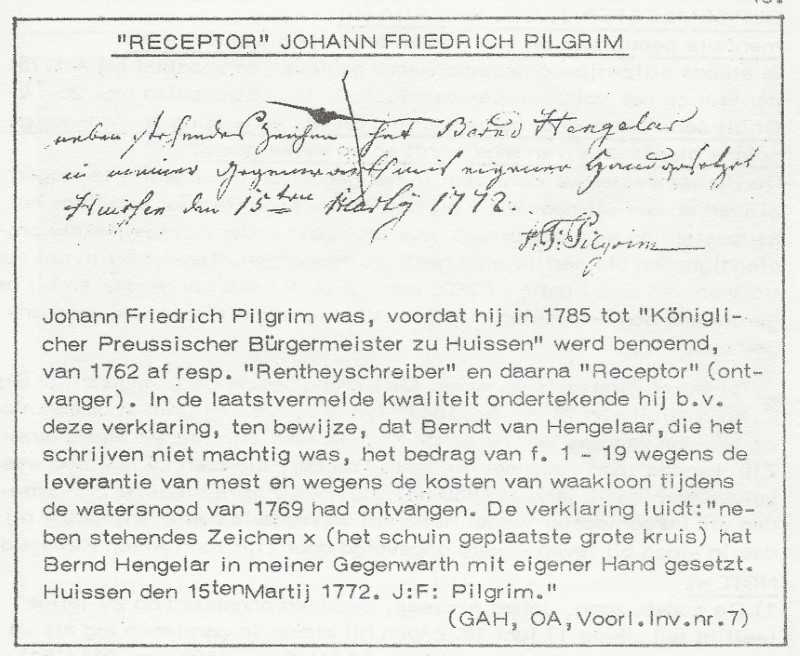 "RECEPTOR" JOHANN FRIEDRICH PILGRIM
neben stehendes Zeichen hat Bernd Hengelar
in meiner Gegenwarth mit eigener Hand gesetzet
Huissen den 15ten Martij 1772.
J:F: Pilgrim
Johann Friedrich Pilgrim was, voordat hij in 1785 tot "Königli-
cher Preussischer Bürgermeister zu Huissen" werd benoemd,
van 1762 af resp. "Rentheyschreiber" en daarna "Receptor" (ont-
vanger). In de laatstvermelde kwaliteit ondertekende hij b.v.
deze verklaring, ten bewijze, dat Berndt van Hengelaar, die het
schrijven niet machtig was, het bedrag van f. 1 - 19 wegens de
leverantie van mest en wegens de kosten van waakloon tijdens
de watersnood van 1769 had ontvangen. De verklaring luidt:"ne-
ben stehendes Zeichen x (het schuin geplaatste grote kruis) hat
Bernd Hengelar in meiner Gegenwarth mit eigener Hand gesetzt.
Huissen den 15tenMartij 1772. J:F: Pilgrim."
(GAH, OA, Voorl.Inv.nr.7)